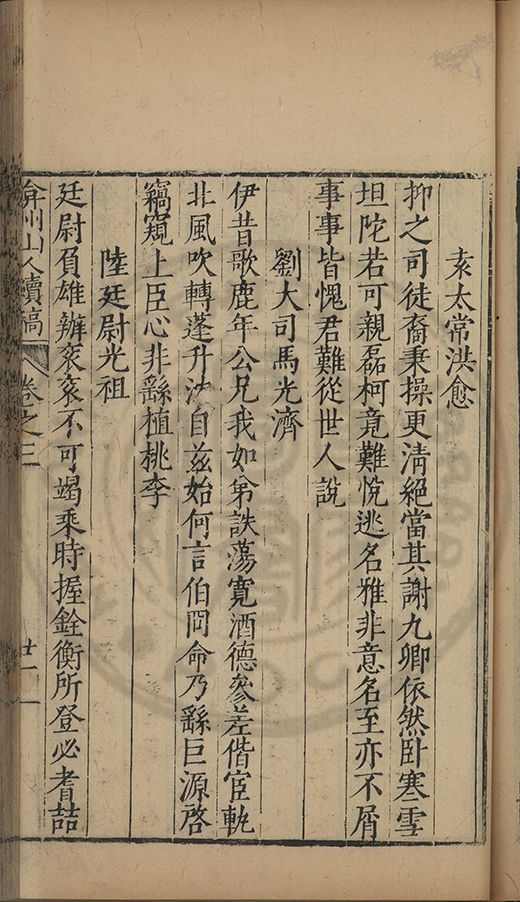 袁太常洪愈
抑之司徒裔秉操更淸絕當其謝九卿依然卧寒雪
坦陀若可親磊柯竟難悅逃名雅非意名至亦不屑
事事皆愧君難從世人說
劉大司馬光濟
伊昔歌鹿年公兄我如弟詄蕩寬酒德參差偕宦軌
北風吹轉蓬升沈自兹始何言伯冏命乃繇巨源啓
竊窺上臣心非繇植桃李
陸廷尉光祖
廷尉負雄辨衮衮不可竭乘時握銓衡所登必耆喆
弇州山人續稿 卷之三 廿一